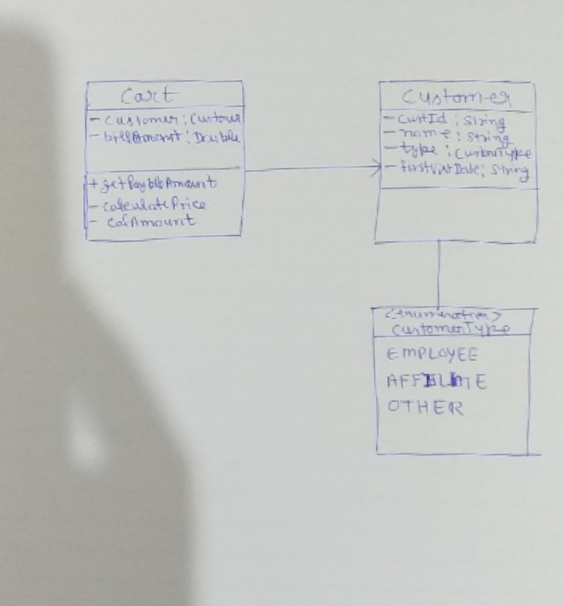 Cart
- customer : Customer
- billAmount : Double
+ getPaybleAmount
- calculatePrice
- calAmount
Customer
- custId : string
- name : string
- type : CustomerType
- firstVisitDate : string
<enumeration>
CustomerType
EMPLOYEE
AFFILIATE
OTHER